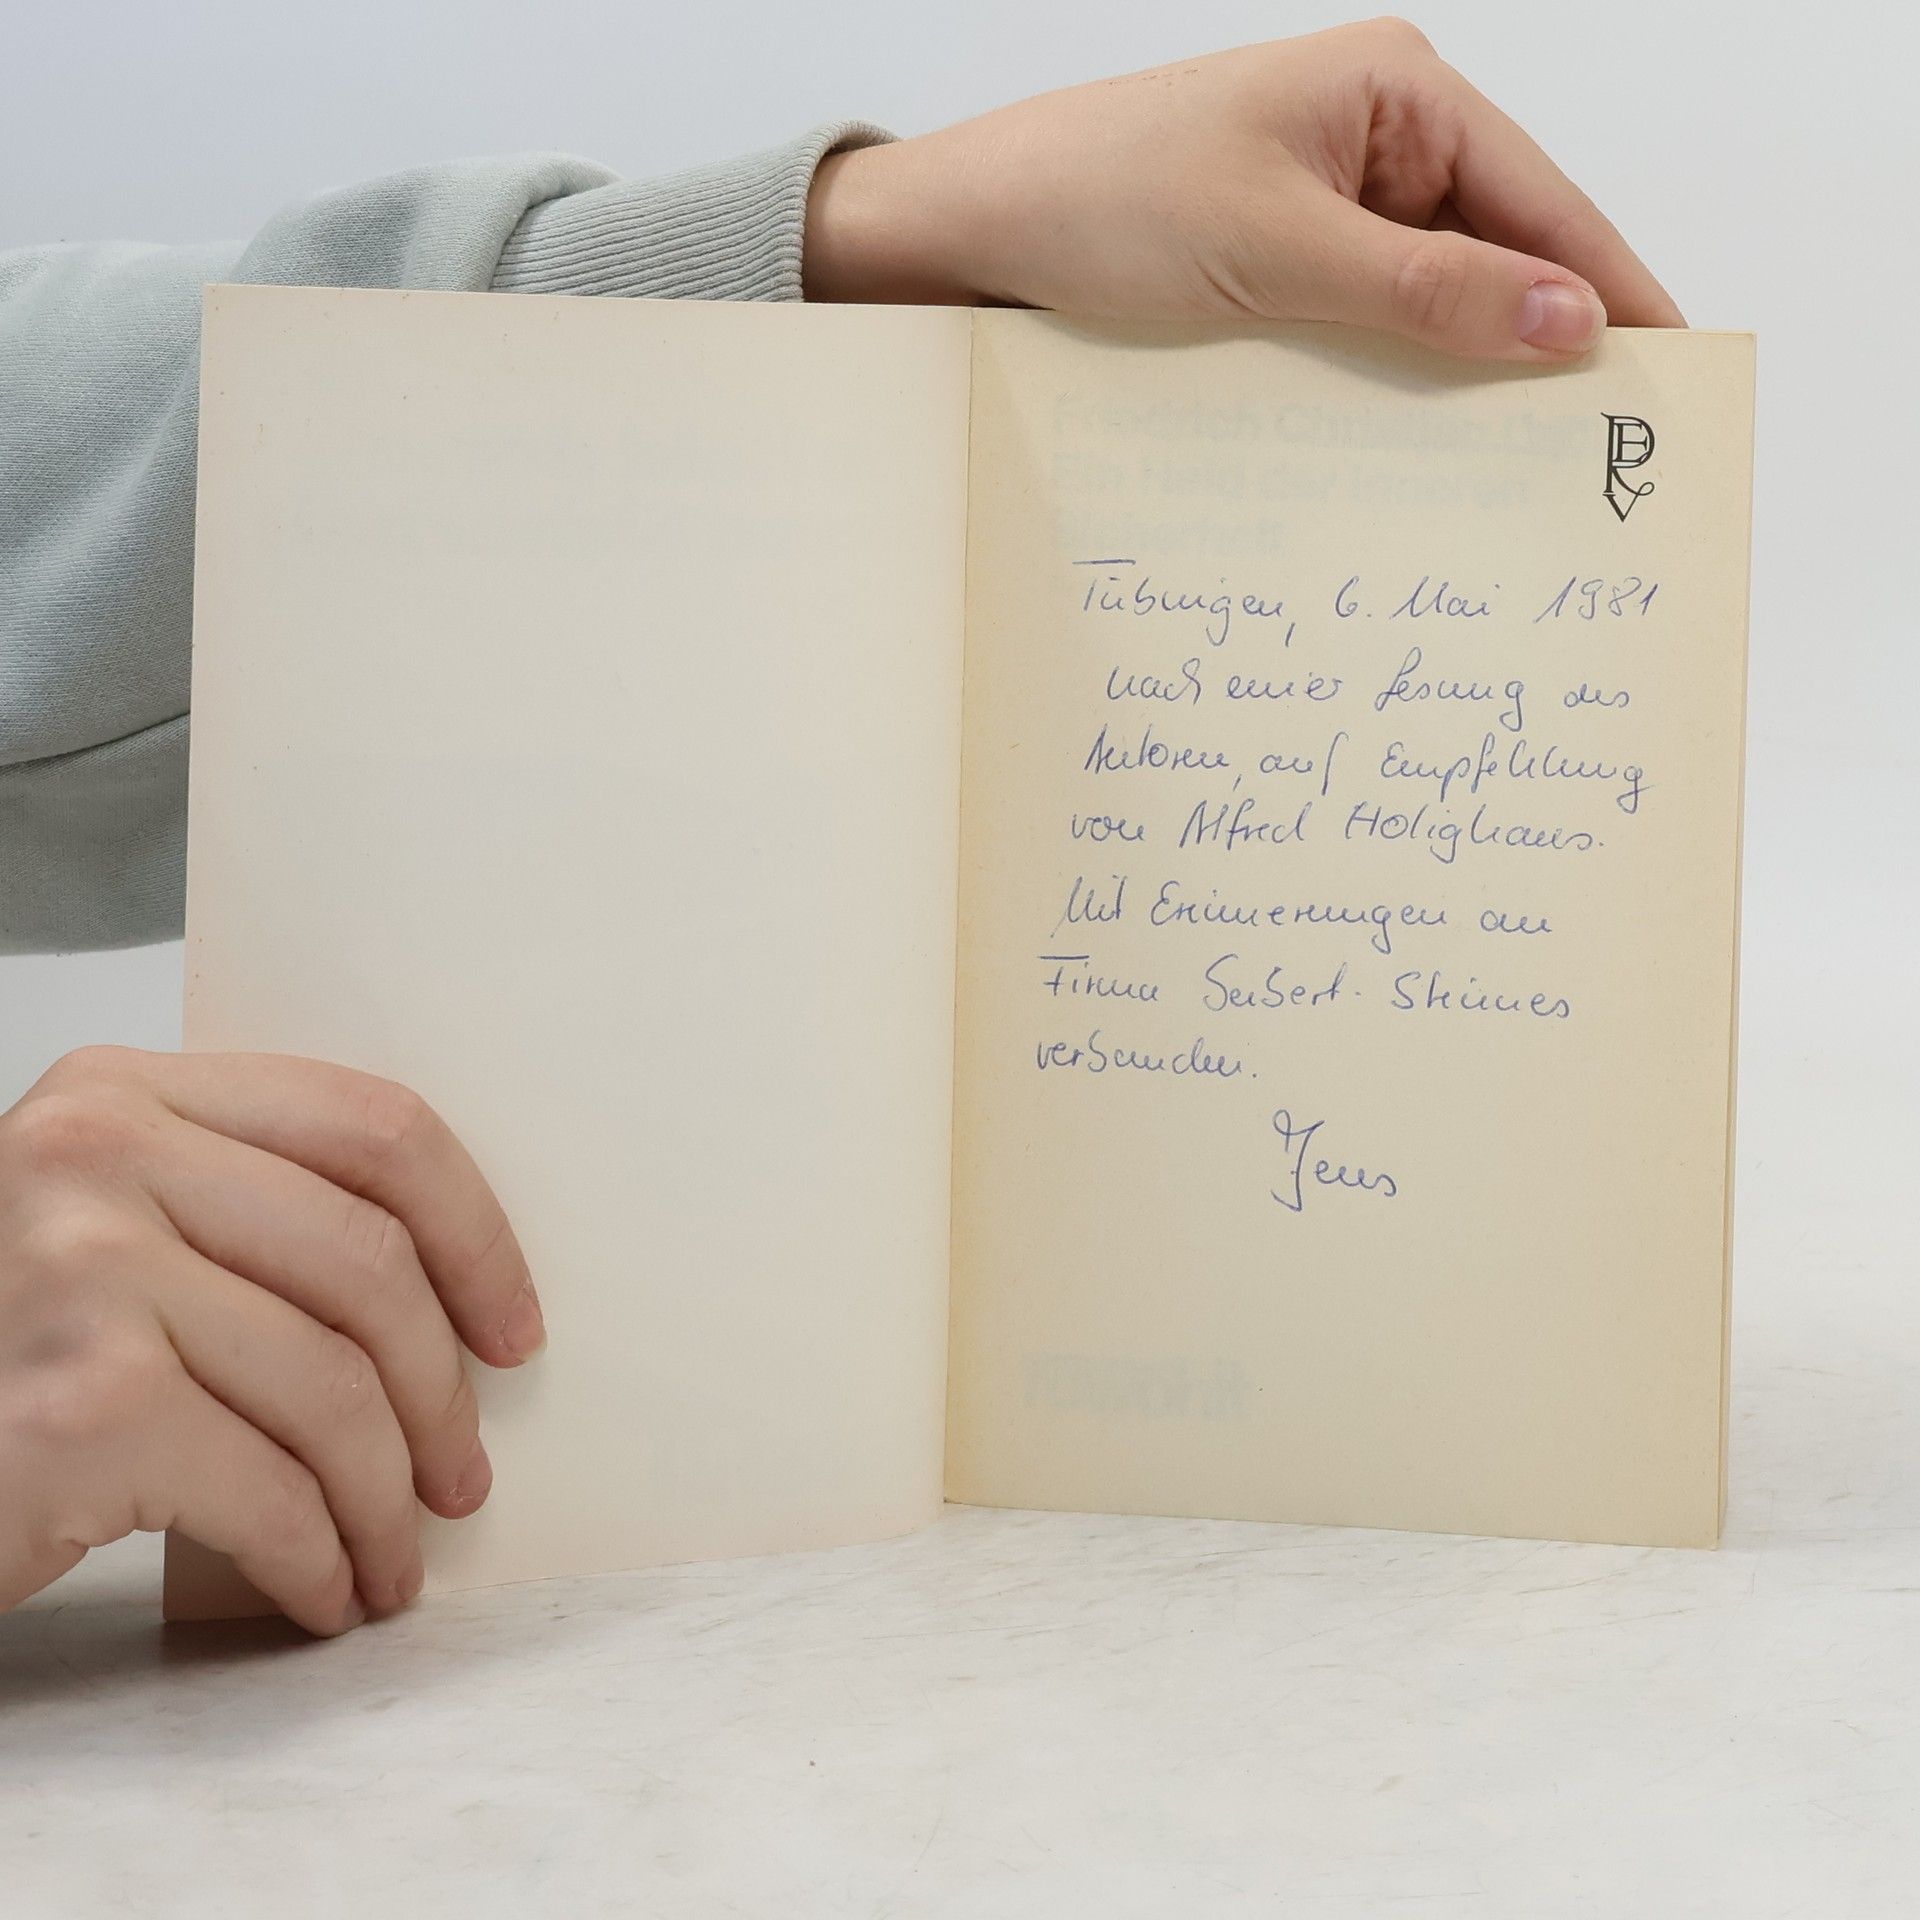 PERV
Tübingen, 6. Mai 1981
nach einer Lesung des
Autoren, auf Empfehlung
von Alfred Holighaus.
Mit Erinnerungen an
Firma Seibert-Stinnes
verbunden.
Jens